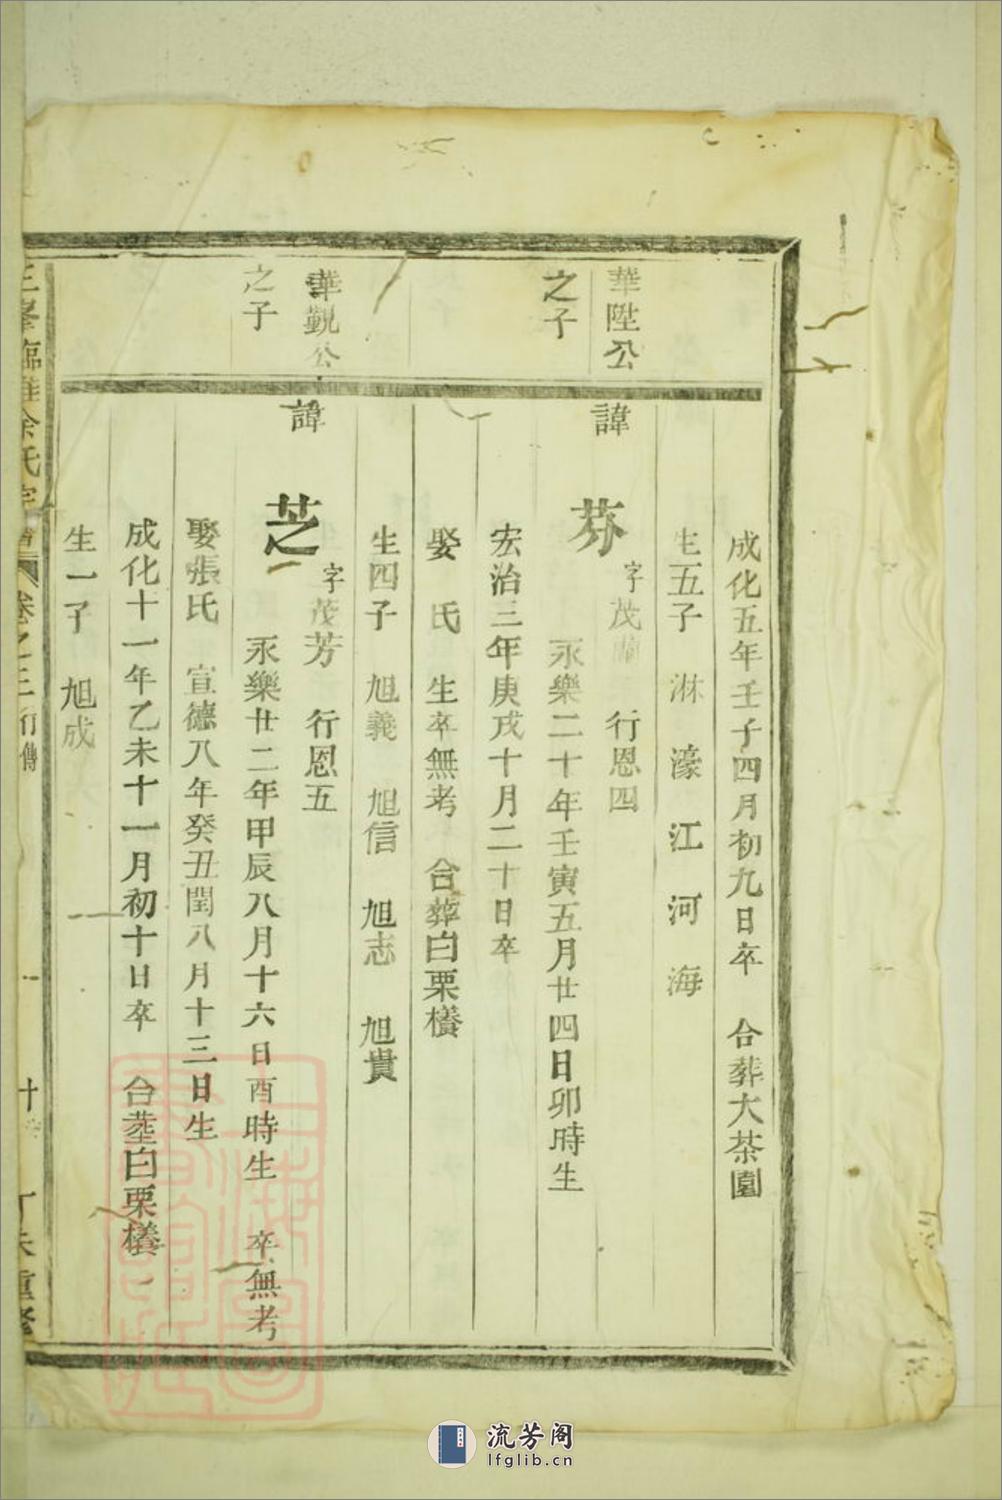 成化五年壬子四月初九日卒　合葬大茶園
生五子　淋　濠　江　河　海
華陞公
之子
諱
芬
字茂蘭　行恩四
永樂二十年壬寅五月廿四日卯時生
宏治三年庚戌十月二十日卒
娶　氏　生卒無考　合葬白栗欉
生四子　旭義　旭信　旭志　旭貴
華觀公
之子
諱
芝
字茂芳　行恩五
永樂廿二年甲辰八月十六日酉時生　卒無考
娶張氏　宣德八年癸丑閏八月十三日生
成化十一年乙未十一月初十日卒　合塟白栗欉
生一子　旭成
余氏
卷之三
流芳阁
lfglib.cn